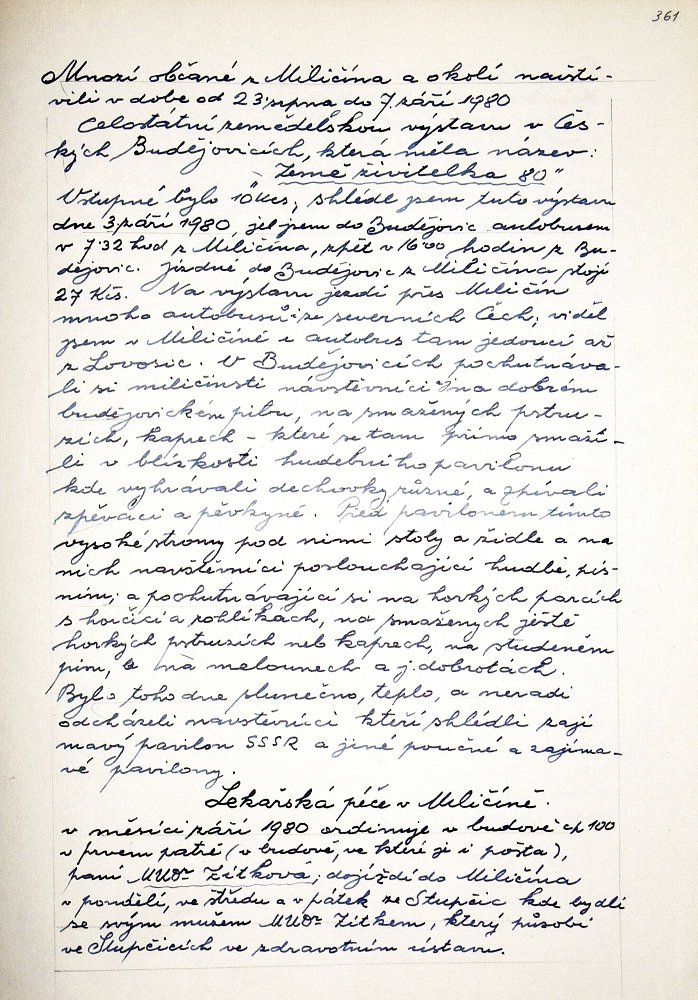 361
Mnozí občané z Miličína a okolí navští-
vili v době od 23.srpna do 7. září 1980
Celostátní zemědělskou výstavu v Čes-
kých Budějovicích, která měla název:
„Země živitelka 80"
Vstupné bylo 10 Kčs, shlédl jsem tuto výstavu
dne 3. září 1980, jel jsem do Budějovic autobusem
v 7.32 hod z Miličína, zpět v 16.00 hodin z Bu-
dějovic. Jízdné do Budějovic z Miličína stojí
27 Kčs. Na výstavu jezdí přes Miličín
mnoho autobusů i ze severních Čech, viděl
jsem v Miličíně i autobus tam jedoucí až
z Lovosic. V Budějovicích pochutnáva-
li si miličínští návštěvníci i na dobrém
budějovickém pivu, na smažených pstru-
zích, kaprech – které se tam přímo smaži-
li v blízkosti hudebního pavilonu
kde vyhrávali dechovky různé, a zpívali
zpěváci a pěvkyně. Před pavilonem tímto
vysoké stromy pod nimi stoly a židle a na
nich navštěvníci poslouchající hudbě, pís-
ním, a pochutnávající si na horkých párcích
s hořčicí a rohlíkách, na smažených ještě
horkých pstruzích neb kaprech, na studeném
pivu, a na melounech a j. dobrotách.
Bylo toho dne slunečno, teplo, a neradi
odcházeli navštěvníci kteří shlédli zají
mavý pavilon SSSR a jiné poučné a zajíma-
vé pavilony.
Lékařská péče v Miličíně.
v měsíci září 1980 ordinuje v budově čp 100
v prvém patře (v budově, ve které je i pošta),
paní MUDr Zítková, dojíždí do Miličína
v pondělí, ve středu a v pátek ze Stupčic kde bydlí
se svým mužem MUDr Zítkem, který působí
ve Stupčicích ve zdravotním ústavu.